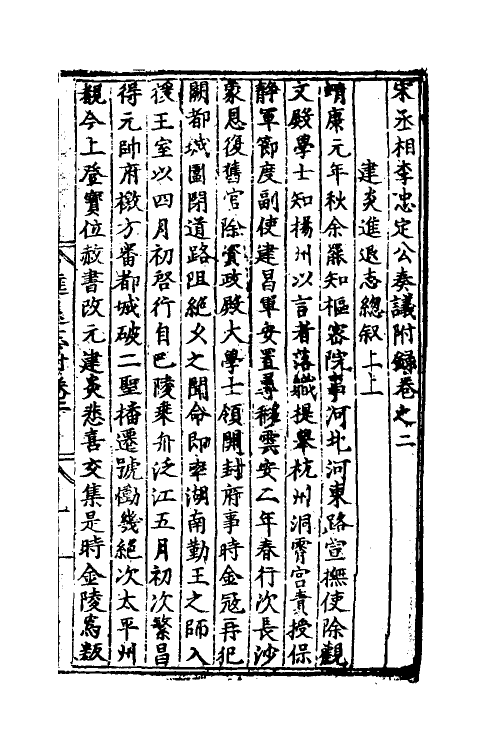 宋丞相李忠定公奏議附錄卷之二
建炎進退志總叙上之上
靖康元年秋余罷知樞密院事河北河東路宣撫使除觀
文殿學士知揚州以言者落職提舉杭州洞霄宮責授保
靜軍節度副使建昌軍安置尋移雲安二年春行次長沙
蒙恩復舊官除資政殿大學士領開封府事時金冦再犯
闕都城圍閉道路阻絶久之聞命即率湖南勤王之師入
援王室以四月初啓行自巴陵乗舟泛江五月初次繁昌
得元帥府檄方審都城破二聖播遷號慟幾絶次太平州
觀今上登寶位赦書改元建炎悲喜交集是時金陵爲叛